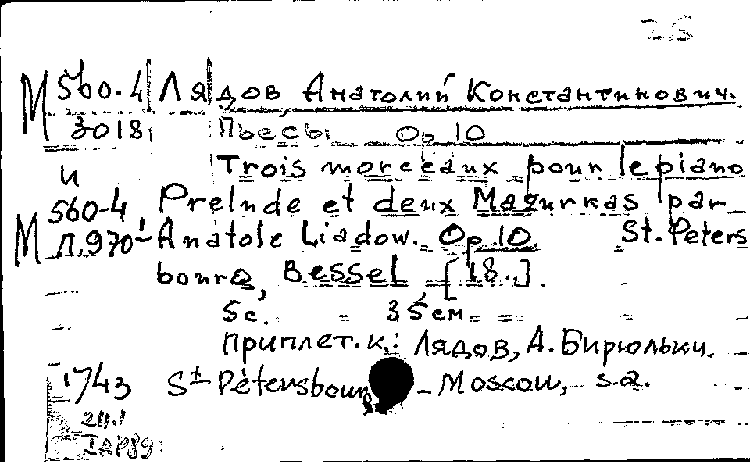 25
М 560-4 Лядов Анатолий Константинович.
3018 Пьесы Op 10
и Trois morceaux pour le piano
560-4 Prelude et deux Mazurkas par
М Л.970 Anatole Liadow. Op.10. St. Peters
bourg, Bessel, [18..].
5 с. 35 см.
приплет. к.: Лядов, А. Бирюльки.
1743 St Pétersbourg - Moscou, s.a.